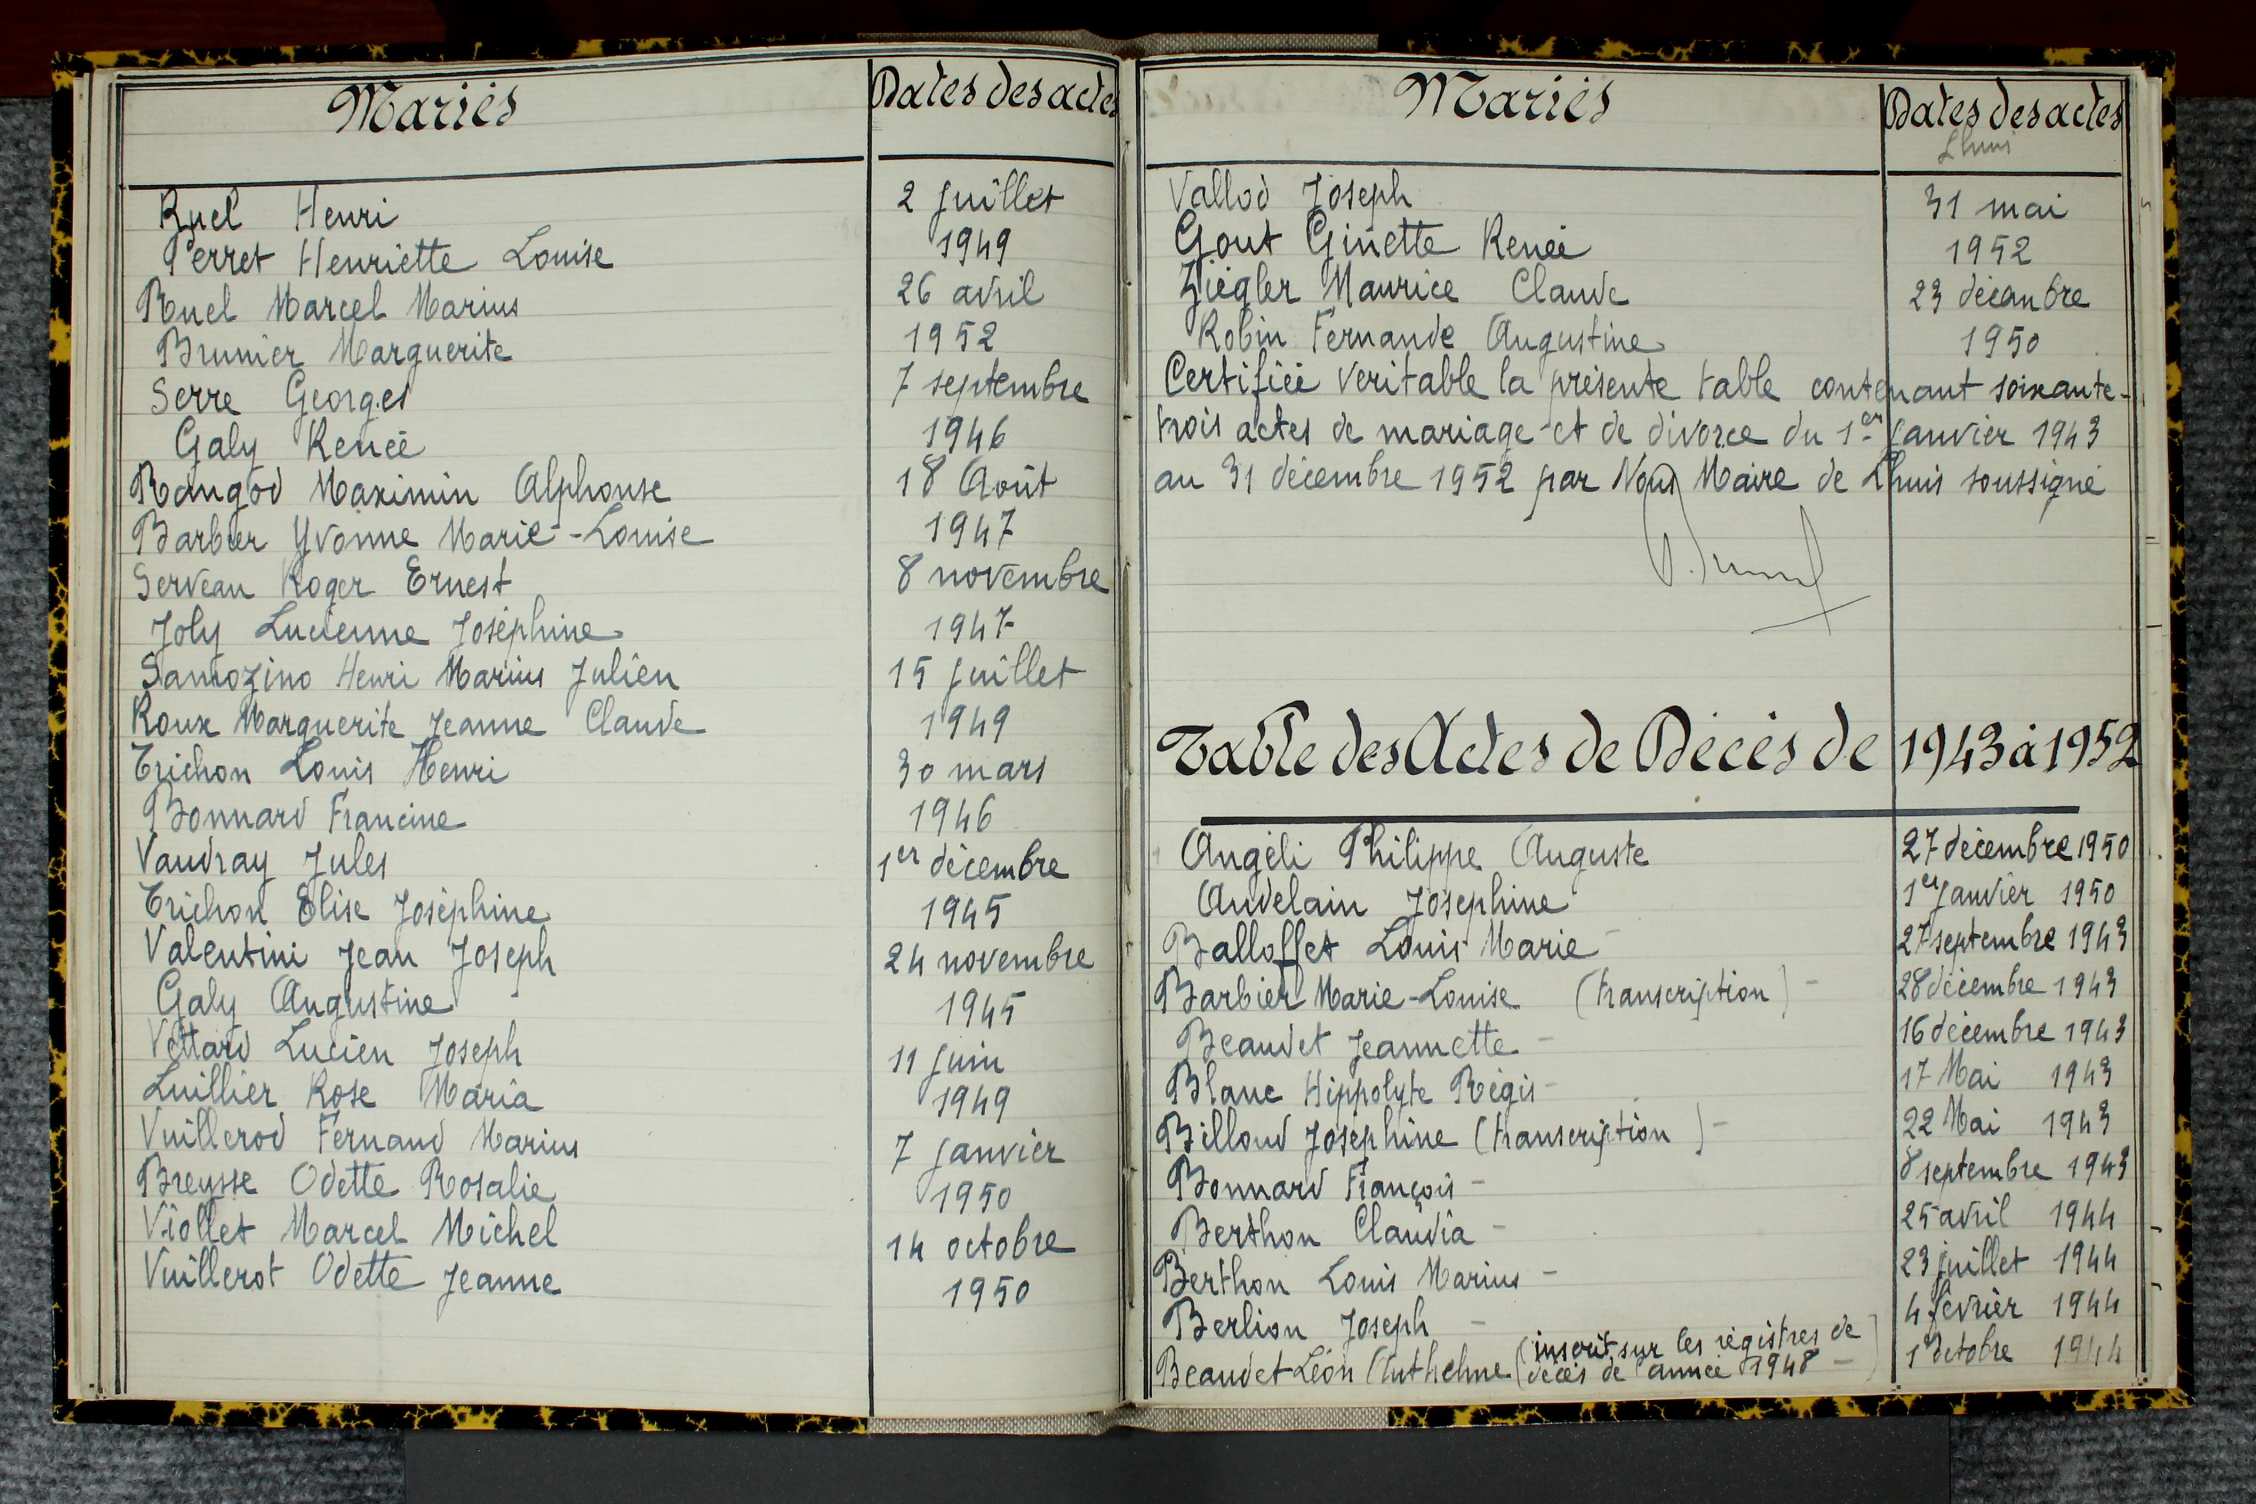 Mariés Dates des actes
Ruel Henri 2 juillet
Perret Henriette Louise 1949
Ruel Marcel Marius 26 avril
Brunier Marguerite 1952
Serre Georges 7 septembre
Galy Renée 1946
Rangod Maximin Alphonse 18 Août
Barbier Yvonne Marie-Louise 1947
Serveau Roger Ernest 8 novembre
Joly Lucienne Joséphine 1947
Samozino Henri Marius Julien 15 juillet
Roux Marguerite Jeanne Claude 1949
Trichon Louis Henri 30 mars
Bonnard Francine 1946
Vaudray Jules 1er décembre
Trichon Elise Joséphine 1945
Valentini Jean Joseph 24 novembre
Galy Augustine 1945
Vettard Lucien Joseph 11 juin
Luillier Rose Maria 1949
Vuillerod Fernand Marius 7 janvier
Breysse Odette Rosalie 1950
Viollet Marcel Michel 14 octobre
Vuillerot Odette Jeanne 1950
Mariés Dates des actes
Lhuis
Vallod Joseph 31 mai
Gout Ginette Renée 1952
Ziegler Maurice Claude 23 décembre
Robin Fernande Augustine 1950
Certifiée veritable la présente table contenant soixante-
trois actes de mariage et de divorce du 1er janvier 1943
au 31 décembre 1952 par Nous Maire de Lhuis soussigné
Table des Actes de Décès de 1943 à 1952
Angéli Philippe Auguste 27 décembre 1950
Andelain Josephine 1er janvier 1950
Balloffet Louis Marie - 27 septembre 1943
Barbier Marie-Louise (transcription) - 28 décembre 1943
Beaudet Jeannette - 16 décembre 1943
Blanc Hippolyte Régis - 17 Mai 1943
Billoud Joséphine (transcription) - 22 Mai 1943
Bonnard François - 8 septembre 1943
Berthon Claudia - 25 avril 1944
Berthon Louis Marius - 23 juillet 1944
Berlion Joseph - 4 février 1944
Beaudet Léon Anthelme (inscrit sur les régistres de
décès de l'année 1948 -) 1er octobre 1944